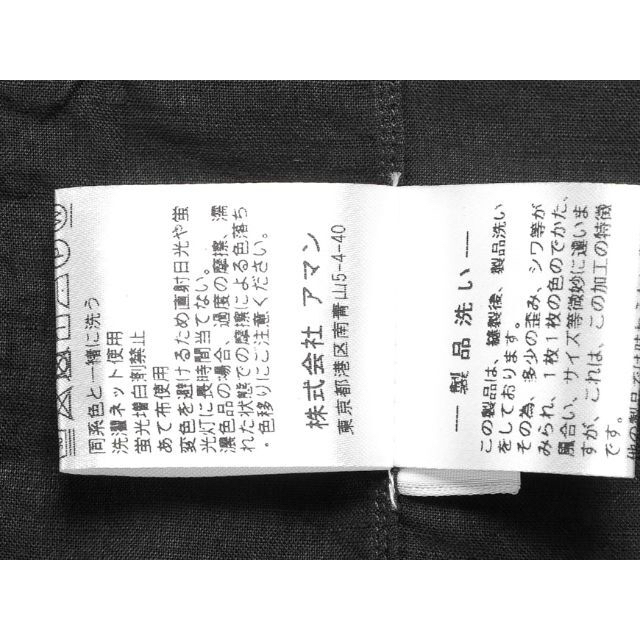 同系色と一緒に洗う
洗濯ネット使用
蛍光増白剤禁止
あて布使用
変色を避けるため直射日光や蛍
光灯に長時間当てない。
濃色品の場合、過度の摩擦、濡
れた状態での摩擦による色落ち
・色移りにご注意ください。
株式会社 アマン
東京都港区南青山5-4-40
— 製品洗い —
この製品は、縫製後、製品洗い
をしております。
その為、多少の歪み、シワ等が
みられ、1枚1枚の色のでかた、
風合い、サイズ等微妙に違いま
すが、これは、この加工の特徴
です。